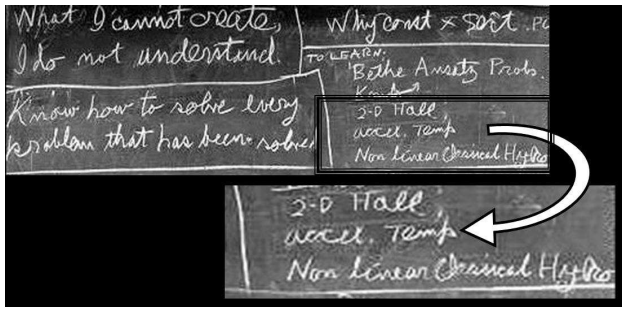 What I cannot create,
I do not understand.
Know how to solve every
problem that has been solved
Why const × sort .
TO LEARN:
Bethe Ansatz Probs.
Kondo
2-D Hall
accel. Temp
Non linear Classical Hydro
2-D Hall
accel. Temp
Non linear Classical Hydro